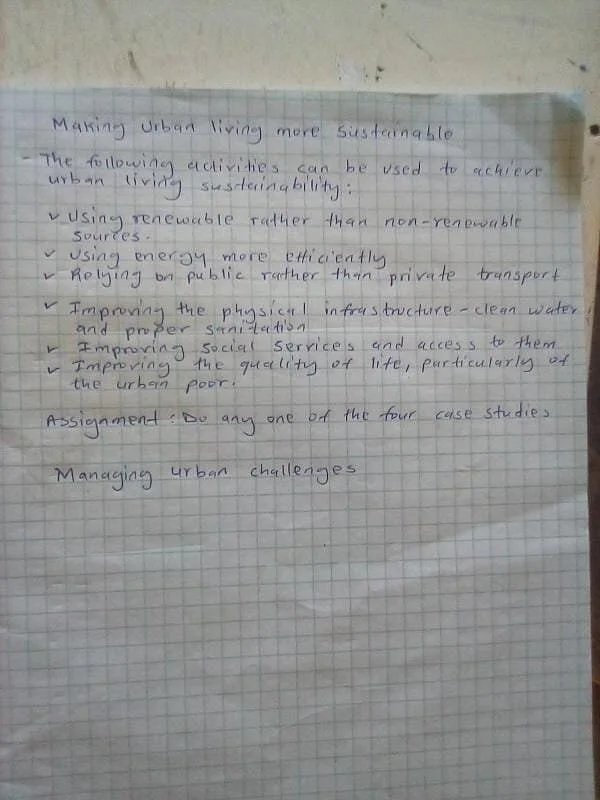 Making urban living more sustainable
- The following activities can be used to achieve
urban living sustainability:
✓ Using renewable rather than non-renewable
sources.
✓ Using energy more efficiently
✓ Relying on public rather than private transport
✓ Improving the physical infrastructure - clean water
and proper sanitation
✓ Improving social services and access to them
✓ Improving the quality of life, particularly of
the urban poor.
Assignment: Do any one of the four case studies
Managing urban challenges